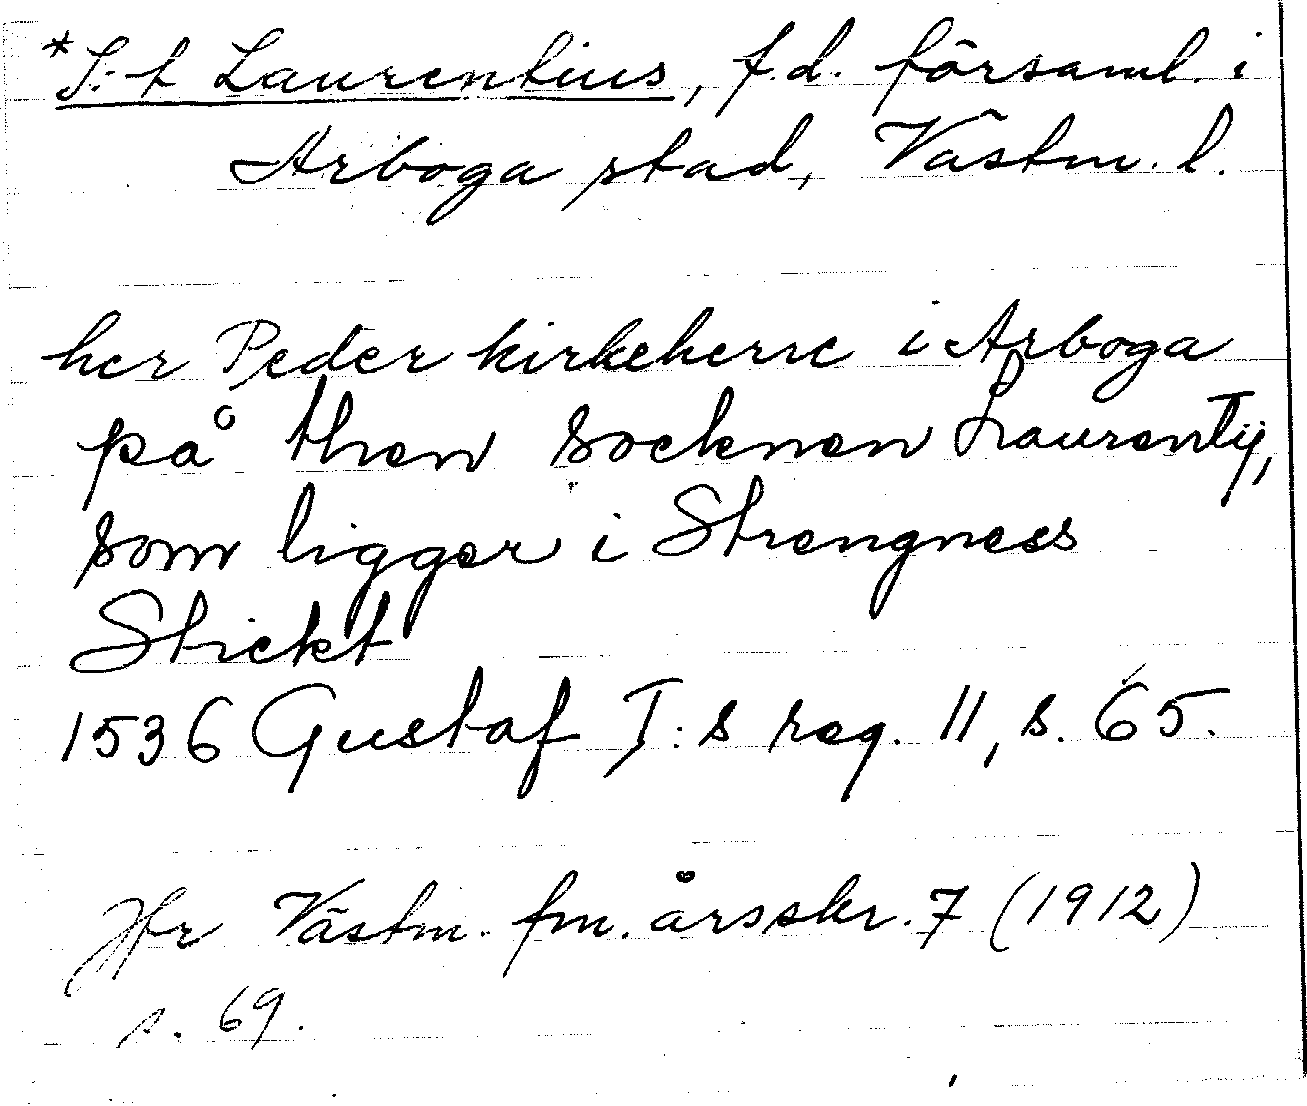 *S:t Laurentius, f.d. församl. i
Arboga stad, Västm. l.
her Peder kirkeherre i Arboga
på then socknen Laurentij,
som ligger i Strengness
Stickt
1536 Gustaf I:s reg. 11, s. 65.
Jfr Västm. fm. årsskr. 7 (1912)
s. 69.